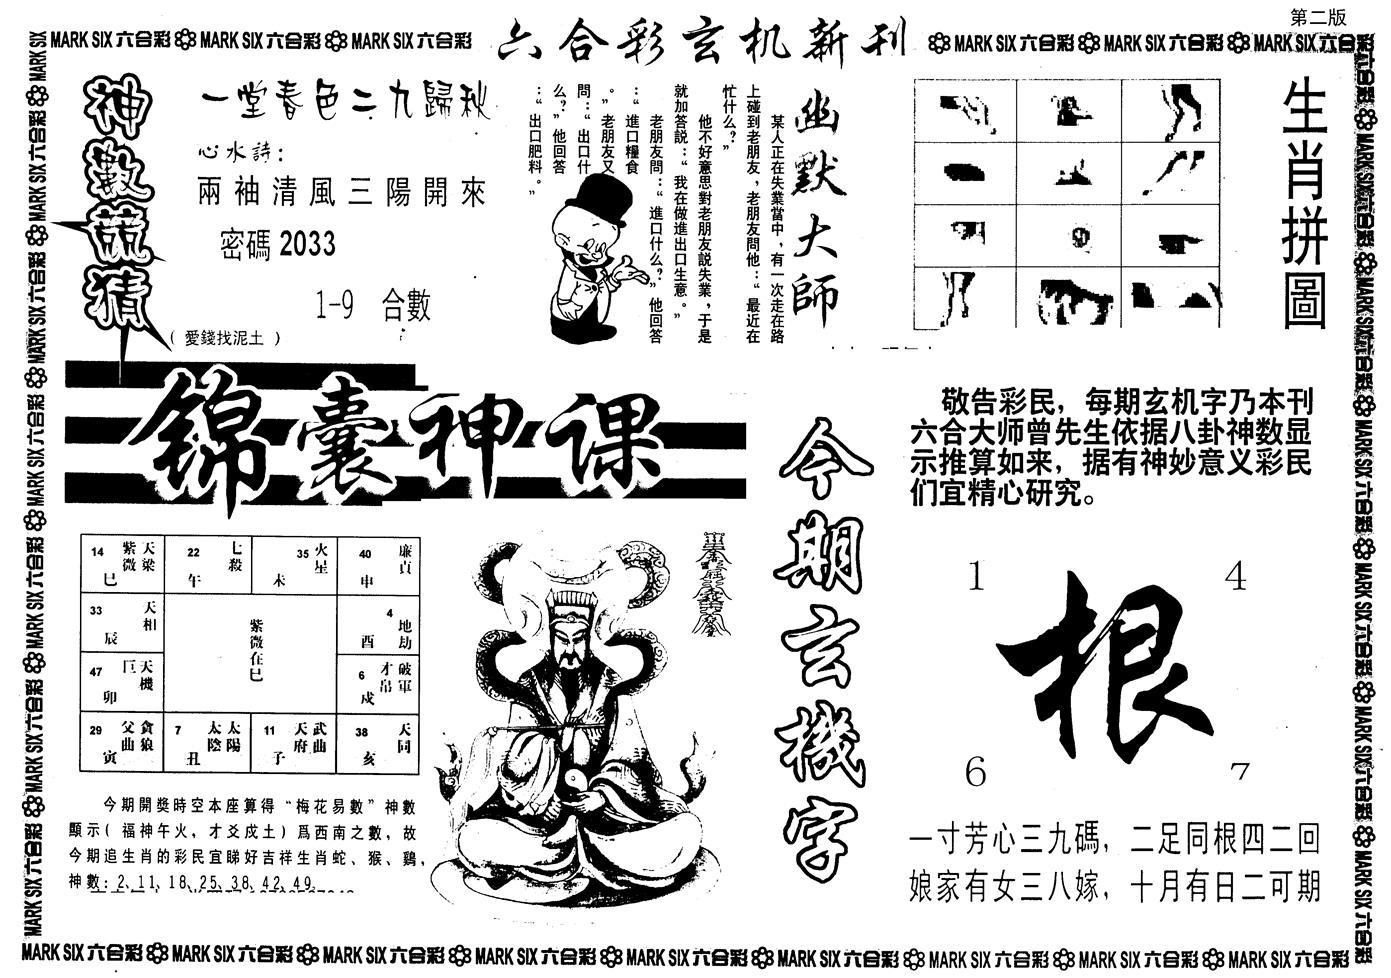 第二版
六合彩玄机新刊
MARK SIX 六合彩 MARK SIX 六合彩 MARK SIX 六合彩
MARK SIX 六合彩 MARK SIX 六合彩 MARK SIX 六合彩
神數競猜
一堂春色二九歸秋
心水詩：
兩袖清風三陽開來
密碼 2033
1-9 合數
（愛錢找泥土）
幽默大師
某人正在失業當中，有一次走在路
上碰到老朋友，老朋友問他：“最近在
忙什么？”
他不好意思對老朋友説失業，于是
就加答説：“我在做進出口生意。”
老朋友問：“進口什么？”他回答
：“進口糧食
。”老朋友又
問：“出口什
么？”他回答
：“出口肥料。”
生肖拼圖
锦囊神课
14 紫微 天梁 巳
22 七殺 午
35 火星 未
40 廉貞 申
33 天相 辰
紫微在巳
4 地劫 酉
47 巨 天機 卯
6 才帛 破軍 戍
29 父曲 貪狼 寅
7 太陰 太陽 丑
11 天府 武曲 子
38 天同 亥
今期開獎時空本座算得“梅花易數”神數
顯示（福神午火，才爻戍土）爲西南之數，故
今期追生肖的彩民宜睇好吉祥生肖蛇、猴、鷄，
神數：2、11、18、25、38、42、49
今期玄機字
敬告彩民，每期玄机字乃本刊
六合大师曾先生依据八卦神数显
示推算如来，据有神妙意义彩民
们宜精心研究。
1 4
根
6 7
一寸芳心三九碼，二足同根四二回
娘家有女三八嫁，十月有日二可期
MARK SIX 六合彩 MARK SIX 六合彩 MARK SIX 六合彩 MARK SIX 六合彩 MARK SIX 六合彩 MARK SIX 六合彩 MARK SIX 六合彩 MARK SIX 六合彩 MARK SIX 六合彩